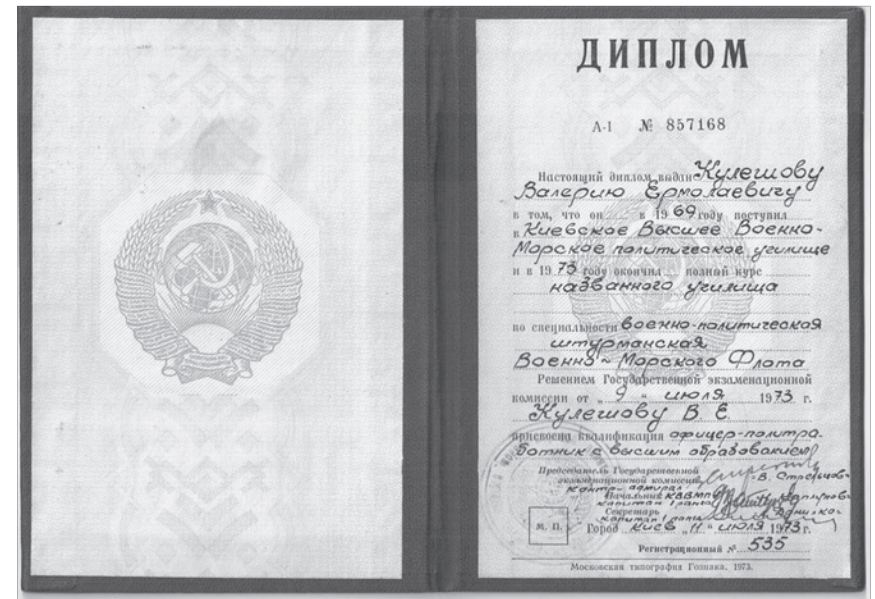 ДИПЛОМ
А-I № 857168
Настоящий диплом выдан Кулешову
Валерию Ермолаевичу
в том, что он в 1969 году поступил
в Киевское Высшее Военно-
Морское политическое училище
и в 1973 году окончил полный курс
названного училища
по специальности военно-политическая
штурманская
Военно-Морского Флота
Решением Государственной экзаменационной
комиссии от „9“ июля 1973 г.
Кулешову В. Е.
присвоена квалификация офицер-политра-
ботник с высшим образованием
Председатель Государственной
экзаменационной комиссии
контр-адмирал В.
Начальник КВВМПУ
капитан 1 ранга
Секретарь
капитан 1 ранга
М. П. Город Киев „11“ июля 1973 г.
Регистрационный № 535
Московская типография Гознака. 1973.